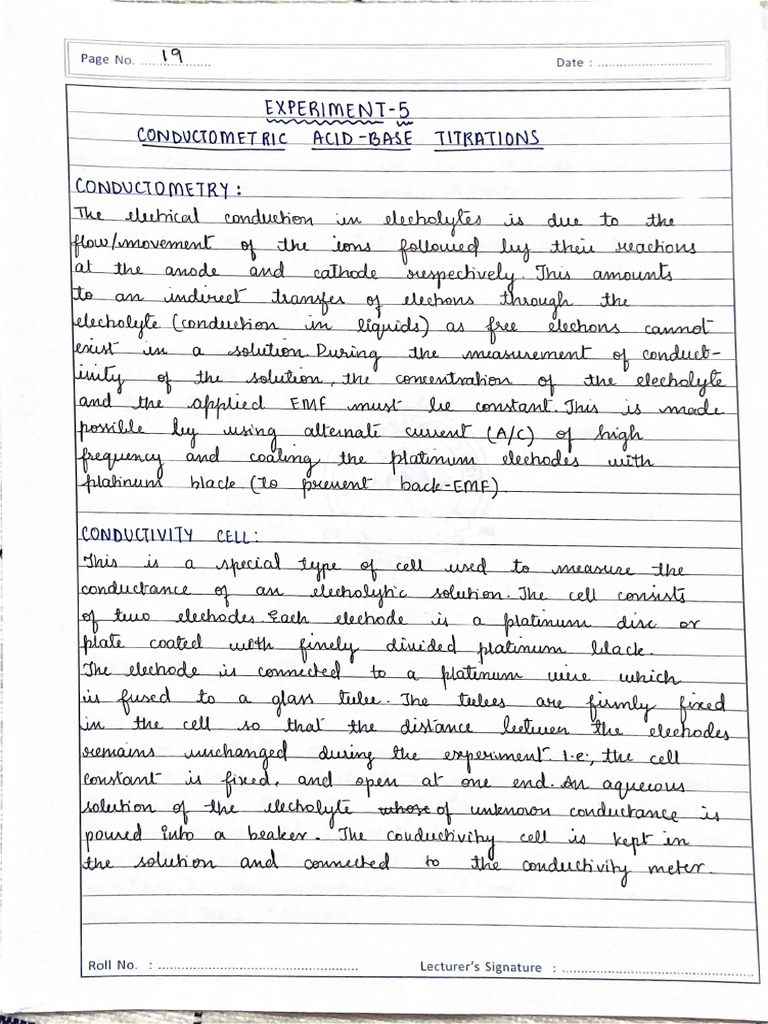 Page No. 19 Date :
EXPERIMENT-5
CONDUCTOMETRIC ACID-BASE TITRATIONS
CONDUCTOMETRY :
The electrical conduction in electrolytes is due to the
flow/movement of the ions followed by their reactions
at the anode and cathode respectively. This amounts
to an indirect transfer of electrons through the
electrolyte (conduction in liquids) as free electrons cannot
exist in a solution. During the measurement of conduct-
ivity of the solution, the concentration of the electrolyte
and the applied EMF must be constant. This is made
possible by using alternate current (A/C) of high
frequency and coating the platinum electrodes with
platinum black (to prevent back-EMF).
CONDUCTIVITY CELL :
This is a special type of cell used to measure the
conductance of an electrolytic solution. The cell consists
of two electrodes. Each electrode is a platinum disc or
plate coated with finely divided platinum black.
The electrode is connected to a platinum wire which
is fused to a glass tube. The tubes are firmly fixed
in the cell so that the distance between the electrodes
remains unchanged during the experiment. I.e;, the cell
constant is fixed, and open at one end. An aqueous
solution of the electrolyte whose of unknown conductance is
poured into a beaker. The conductivity cell is kept in
the solution and connected to the conductivity meter.
Roll No. : Lecturer's Signature :